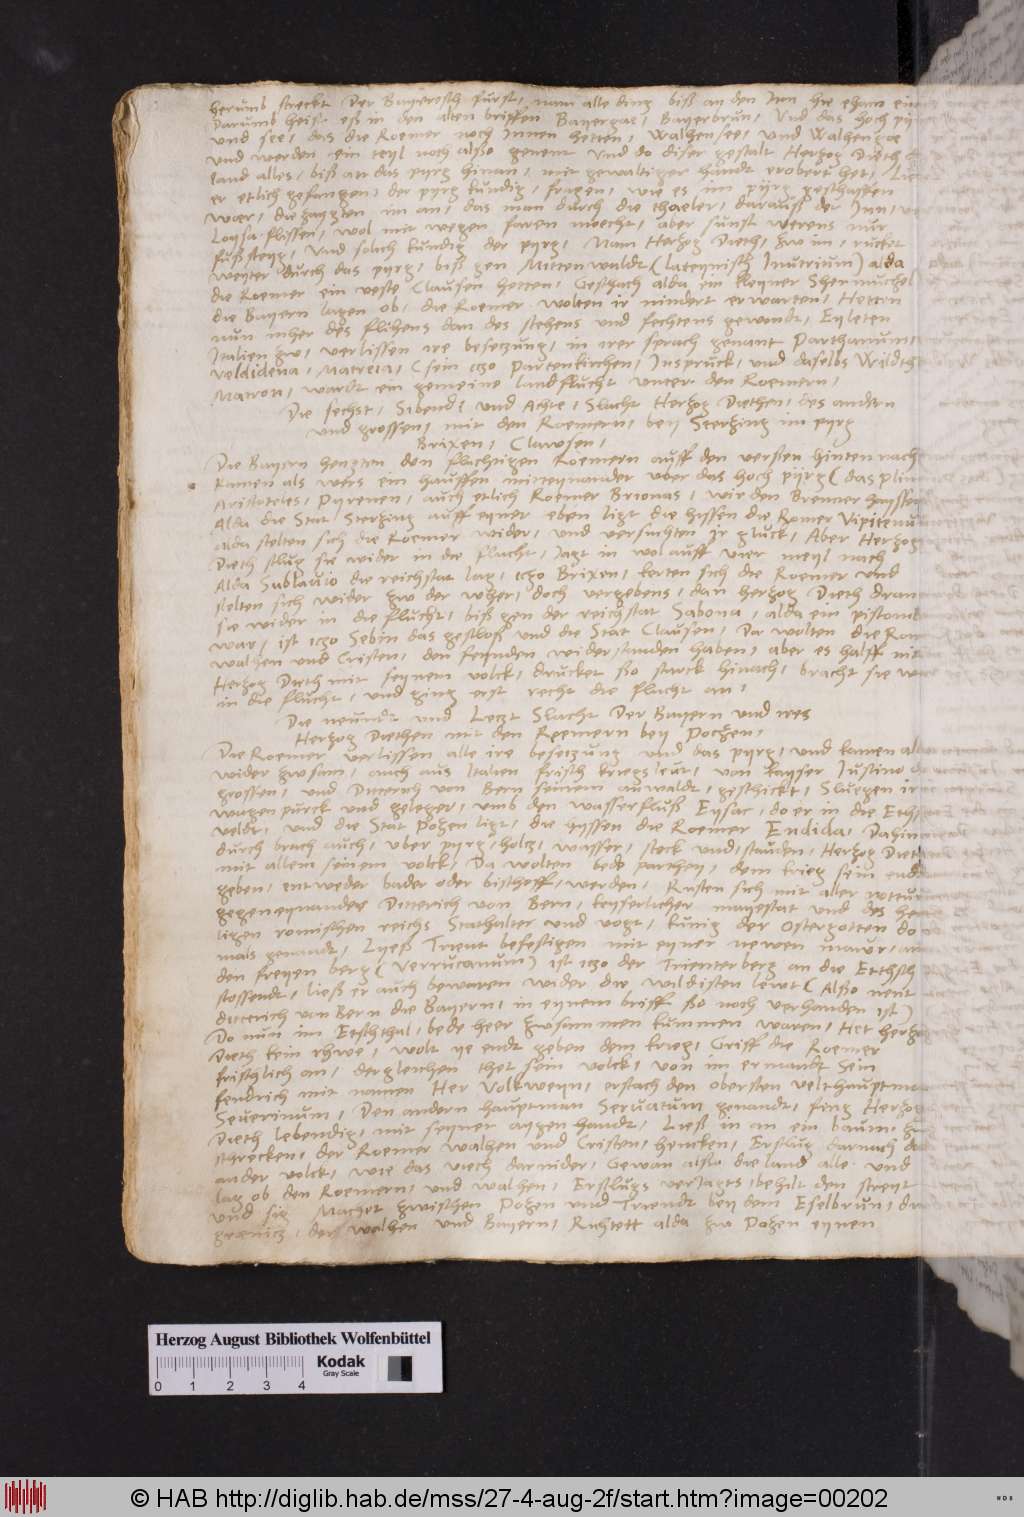 herumb streckt Der Bayerisch furst, nam alle ding biß an den Inn hie eham ein
Darumb heist eß in den alten brieffen Bayergae, Bayerbrun, Und das hoch
und see, das die Roemer noch Innen hetten, Walhensee, und Walhengoe
und werden ein teyl noch alßo genent Und do diser gestalt Herzog Dieth
land alles, biß an das pyrg hinan, mit gewaltiger handt erobert het,
er etlich gefangen, der pyrg kundig, fragen, wie es im pyrg geschaffen
waer, die zaygten im an, das man durch die thaeler, darauß der Inn,
Loysa flissen, wol mit wegen faren moecht, aber sunst werens nur
fußsteyg, Und solich kundig der pyrg, Nam Herzog Dieth, zw im, rucket
weyter durch das pyrg, biß gen Mittenwaldt (lateynisch Inutrium) alda
die Roemer ein veste Clausen hetten, Geschach alda ein kleyner Shermuchel
die Bayern lagen ob, die Roemer wolten ir nindert erwarten, Hetten
nun mher des flihens dan des stehens und fechtens gewondt, Eyleten
Italien zw, verlissen ire beseczung, in irer sprach genant Parthanum,
Veldidena, Matreia, (sein iczo Partenkirchen, Inspruck, und daselbs Wildth
Matron, wardt ein gemeine landflucht unter den Roemern,
Die sechst, Sibend, und Achte, Slacht Herzog Diethen, des andern
und grossen, mit den Roemern, bey Sterzing im pyrg
Brixen, Clawsen,
Die Bayern hengten den fluchtigen Roemern auff den versen hinten nach
kamen als wers ein hauffen miteynander uber das hoch pyrg (das
Aristoteles, Pyrenen, auch etlich Roemer Brionas, wir den Brenner hayssen
Alda die Stat Sterzing auff eyner eben ligt die hissen die Romer Vipitenu
alda stelten sich die Roemer wider, und versuchten ir gluck, Aber Herzog
Dieth slug sie wider in die flucht, Jagt in wol auff vier meyl nach
Alda Sublavio die reichstat lag, iczo Brixen, kerten sich die Roemer und
stelten sich wider zw der wher, doch vergebens, dan herzog Dieth dran
sie wider in die flucht, biß gen der reichstat Sabona, alda ein pistomb
war, ist iczo Sebin das geschloß und die Stat Clausen, Da wolten die Rom
walhen und Cristen, den feynden widerstanden haben, aber es halff nit
Herzog Dieth mit seynem volck, drucket ßo starck hinach, bracht sie
in die flucht, und ging erst recht die flucht an,
Die neundt und Leczt Slacht Der Bayern und ires
Herzog Diethen mit den Roemern bey Poczen,
Die Roemer verlissen alle ire beseczung und das pyrg, und kamen
wider zwsam, auch aus Italien frisch kriegsleut, von kayser Justino
grosten, und Dieterich von Bern seinem anwaldt, geschickt, Sluegen ir
wagenpurck und geleger, umb den wasserfluß Eysac, do er in die Eth
veldt, und die Stat Pozen ligt, die hyssen die Roemer Endida, Dahin
durch brach auch, uber pyrg, holcz, wasser, stock und stauden, Herzog Dieth
mit allem seinem volck, Da wolten bede parthey, dem krieg sein end
geben, entweder bader oder bischoff, werden, Rusten sich mit aller
gegen eynander Dieterich von Bern, keyserlicher mayestat und des hey
ligen romischen reichs Stathalter und vogt, kunig der Ostergotten do
mals genandt, Lyeß Trient befestigen mit eyner newen maur,
den freyen berg (Verrucanum) ist iczo der Trienterberg an die Etthsch
stossendt, ließ er auch bewaren wider die wildisten lewt (Alßo nent
Dieterich von Bern die Bayern, in eynem brieff ßo noch verhanden ist)
Do nun im Etschthal, bede heer zwsammen kummen waren, Het herzog
Dieth kein rhwe, wolt ye endt geben dem krieg, Griff die Roemer
frischlich an, dergleichen thet sein volck, von im ermandt Sein
fendrich mit namen Her Volkweyn, erstach den obersten velthauptman
Seuerinum, Den andern hauptman Seruatum genandt, fing Herzog
Dieth lebendig, mit seyner aygen handt, Ließ in an ein baum,
schrecken, der Roemer walhen und Cristen, hencken, Erslug darnach
ander volck, wie das viech darnider, Gewan alßo die land alle und
lag ob den Roemern, und walhen, Erslugs veriagts, behilt den streyt
und sig Machet zwischen Pozen und Triendt bey dem Eselbrun,
graenicz, der walhen und Bayern, Richtett alda zw Pozen eynen
Herzog August Bibliothek Wolfenbüttel
Kodak
Gray Scale
0 1 2 3 4
© HAB http://diglib.hab.de/mss/27-4-aug-2f/start.htm?image=00202